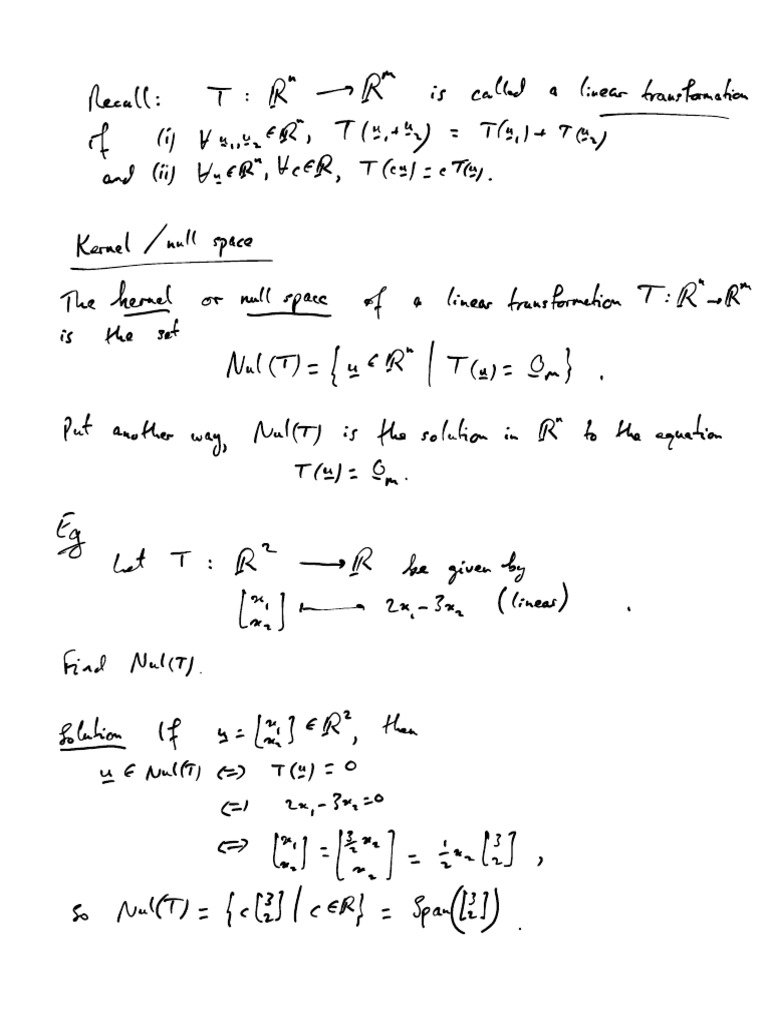 Recall: T : ℝⁿ → ℝᵐ is called a linear transformation
if (i) ∀ u₁, u₂ ∈ ℝⁿ, T(u₁+u₂) = T(u₁) + T(u₂)
and (ii) ∀u ∈ ℝⁿ, ∀c ∈ ℝ, T(cu) = cT(u).
Kernel / null space
The kernel or null space of a linear transformation T : ℝⁿ → ℝᵐ
is the set
Nul(T) = { u ∈ ℝⁿ | T(u) = 0ₘ } .
Put another way, Nul(T) is the solution in ℝⁿ to the equation
T(u) = 0ₘ.
Eg
Let T : ℝ² → ℝ be given by
[x₁ x₂] ⟼ 2x₁ - 3x₂ (linear) .
Find Nul(T).
Solution If u = [x₁ x₂] ∈ ℝ², then
u ∈ Nul(T) ⇔ T(u) = 0
⇔ 2x₁ - 3x₂ = 0
⇔ [x₁ x₂] = [3/2 x₂ x₂] = 1/2 x₂ [3 2] ,
So Nul(T) = { c[3 2] | c ∈ ℝ } = Span([3 2]) .